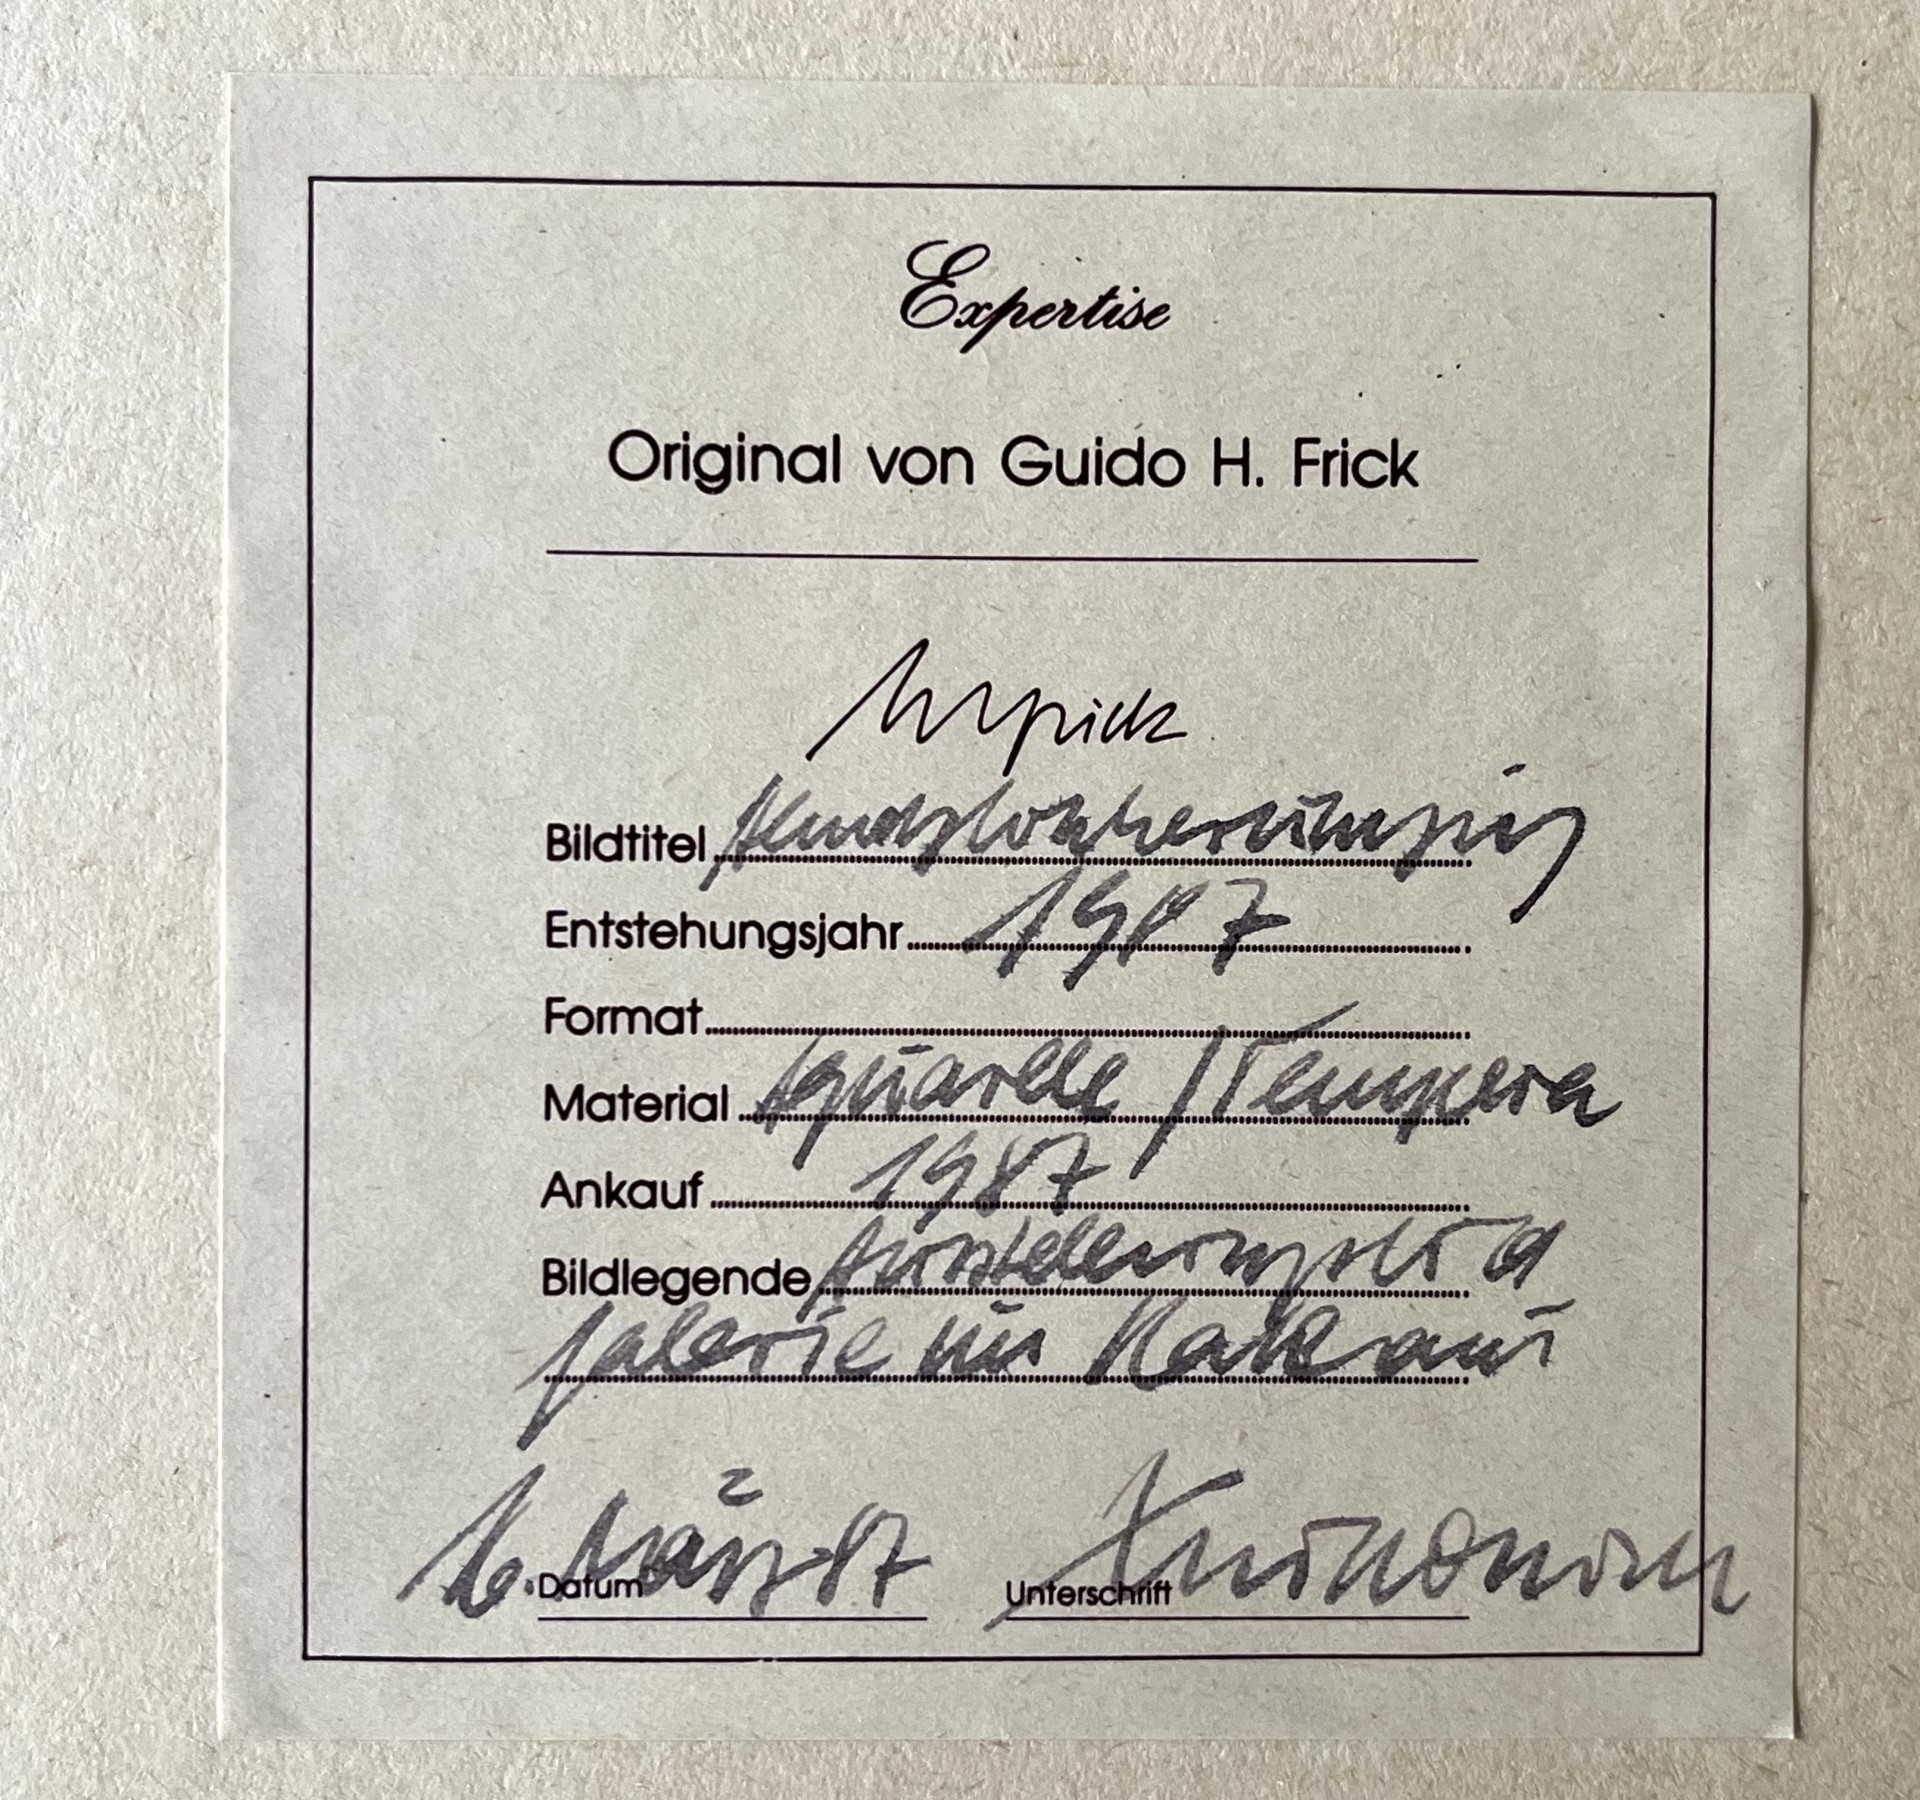 Expertise
Original von Guido H. Frick
Bildtitel
Entstehungsjahr 1987
Format
Material Aquarelle / Tempera
Ankauf 1987
Bildlegende
Galerie im Rathaus
16. März 87
Datum Unterschrift